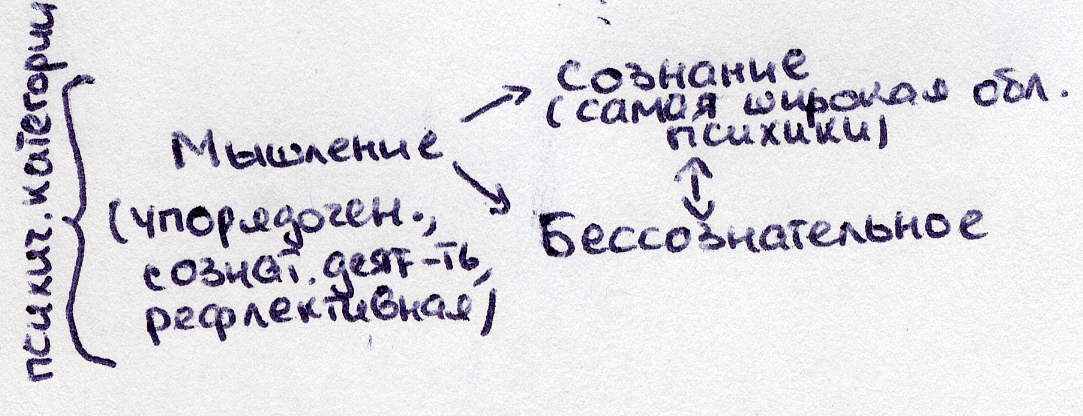 психич. категории
Сознание
(самая широкая обл.
психики)
Мышление
(упорядочен.,
сознат. деят-ть,
рефлективная)
Бессознательное